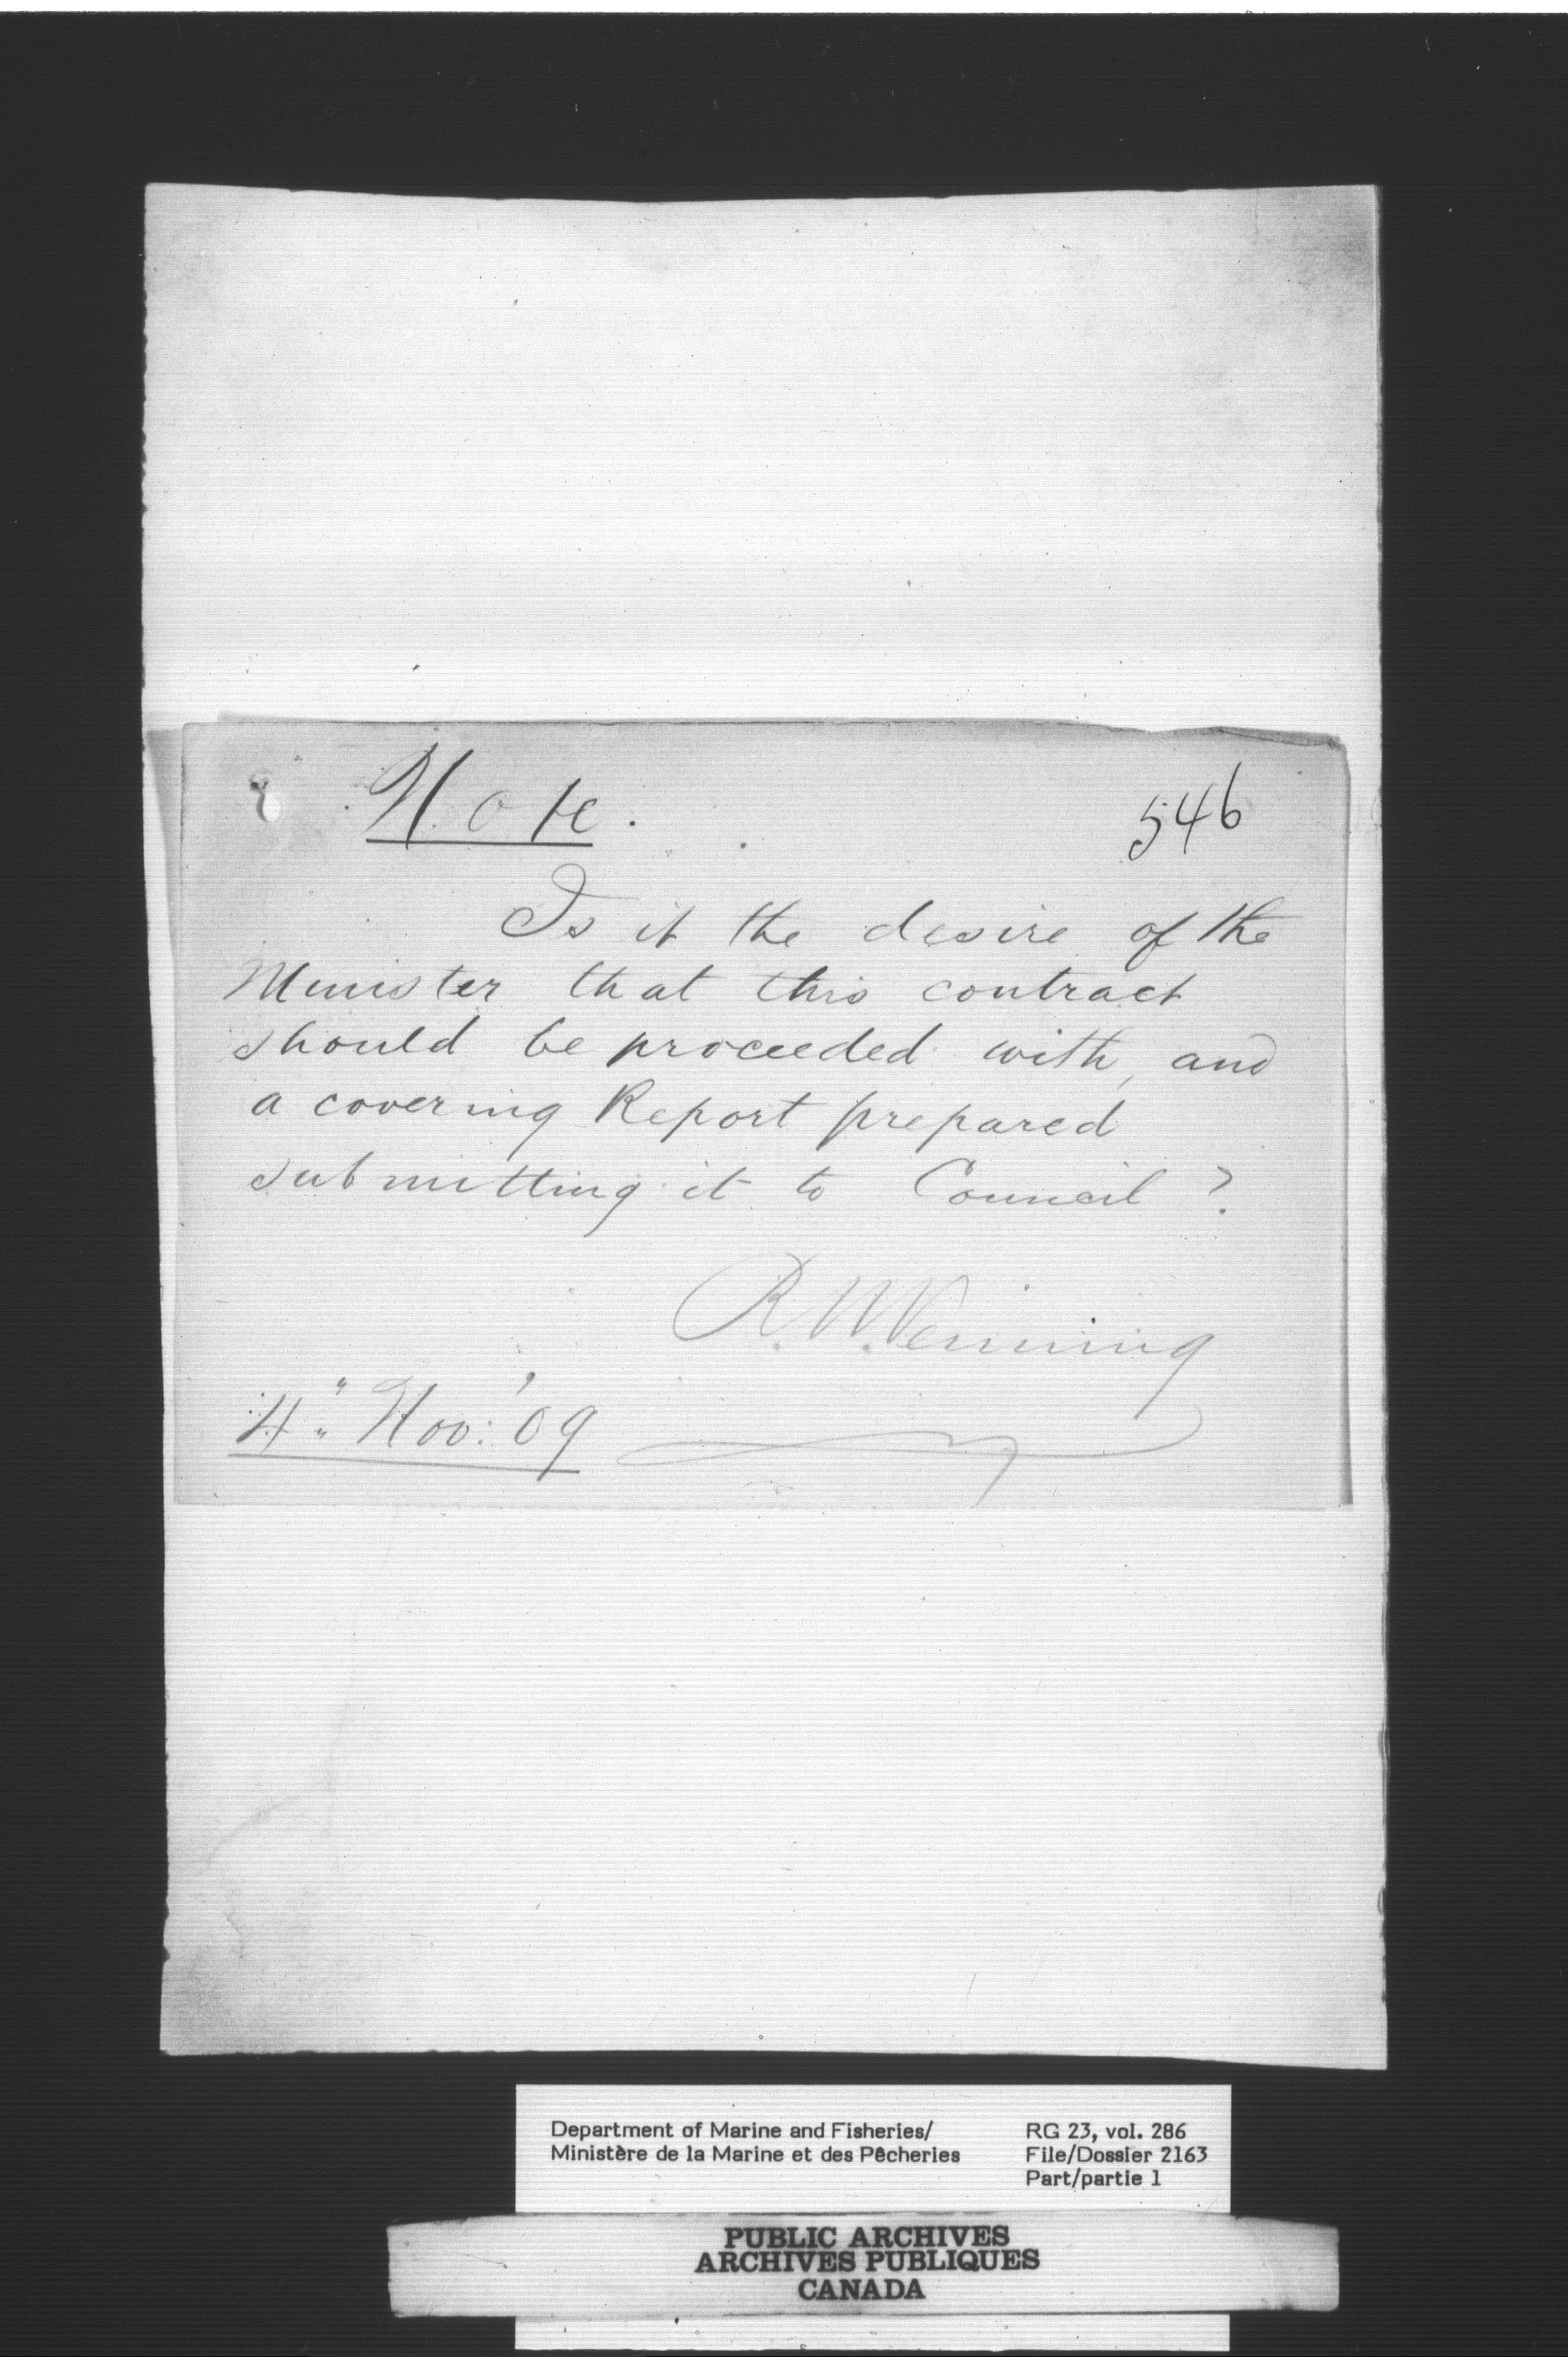 Note.
546
Is it the desire of the
Minister that this contract
should be proceeded with, and
a covering Report prepared
submitting it to Council ?
R. N. Venning
4" Nov: '09
Department of Marine and Fisheries/
Ministère de la Marine et des Pêcheries
RG 23, vol. 286
File/Dossier 2163
Part/partie 1
PUBLIC ARCHIVES
ARCHIVES PUBLIQUES
CANADA